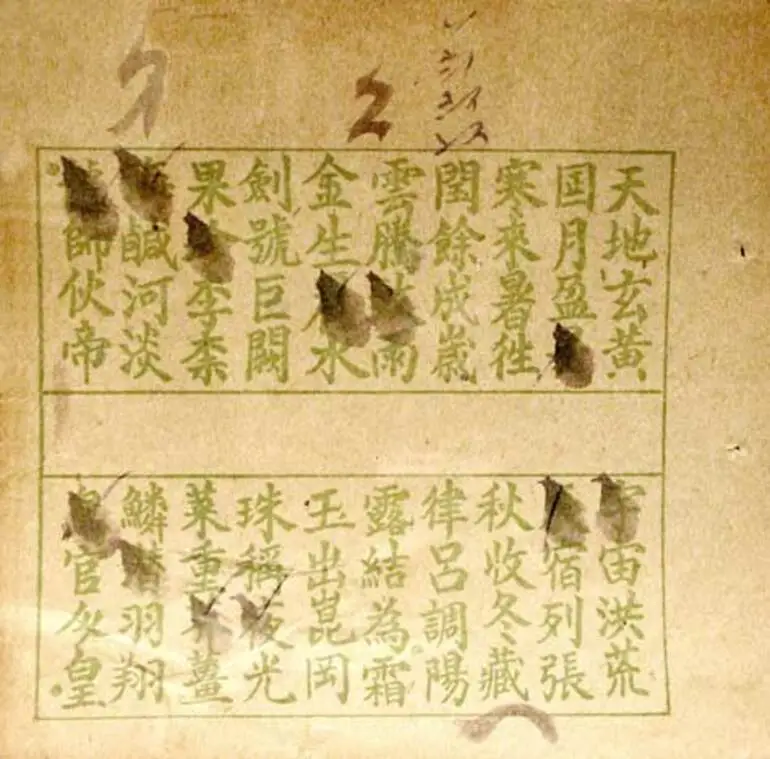 2
天地玄黃
月盈
寒來暑徃
閏餘成歲
雲騰雨
金生水
劍號巨闕
果李柰
鹹河淡
師伙帝
宇宙洪荒
宿列張
秋收冬藏
律呂調陽
露結為霜
玉出崑岡
珠稱夜光
菜重芥薑
鱗潛羽翔
官皇